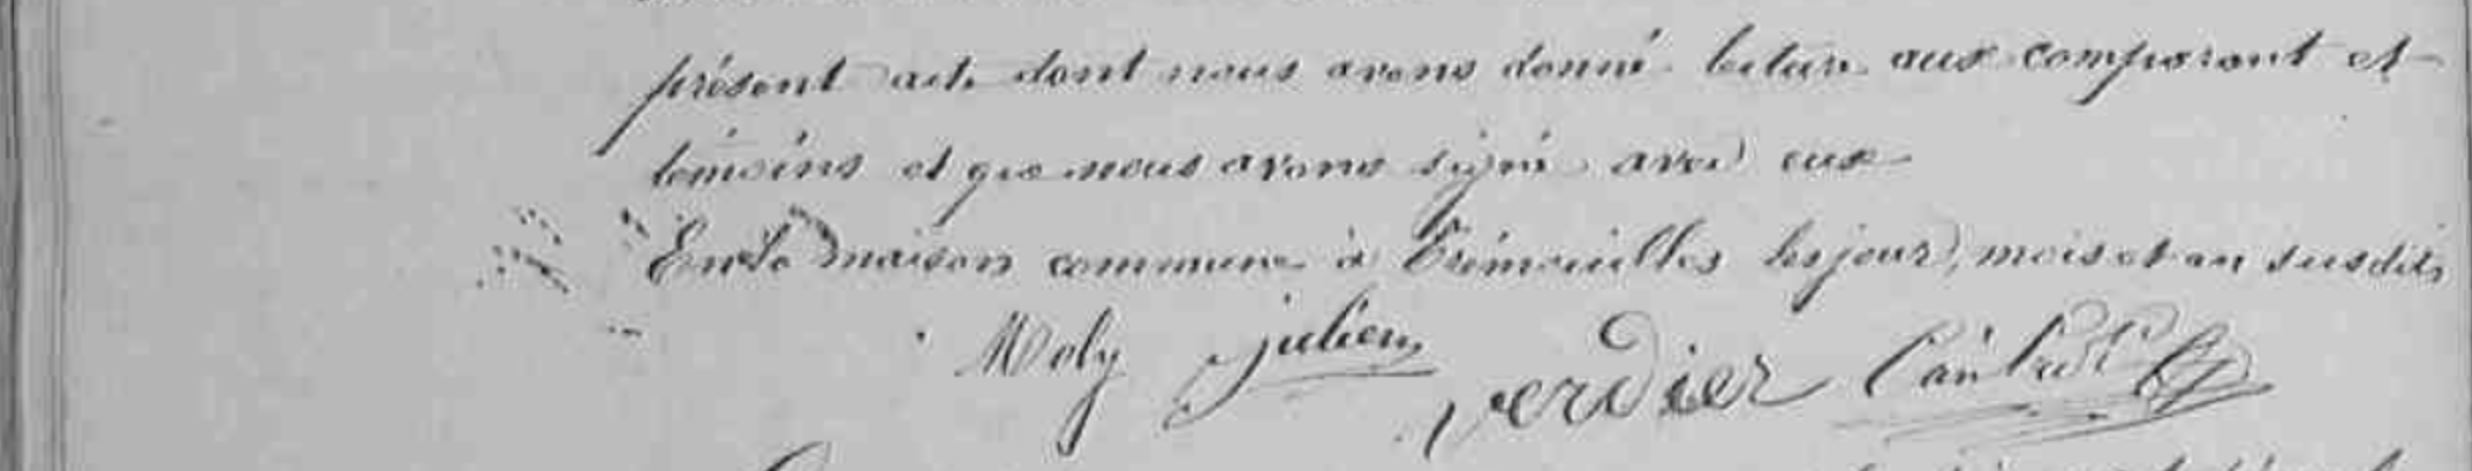 présent acte dont nous avons donné lecture aux comparant et
témoins et que nous avons signé avec eux
En la maison commune à Trémouilles les jour, mois et an susdits
Moly julien Verdier